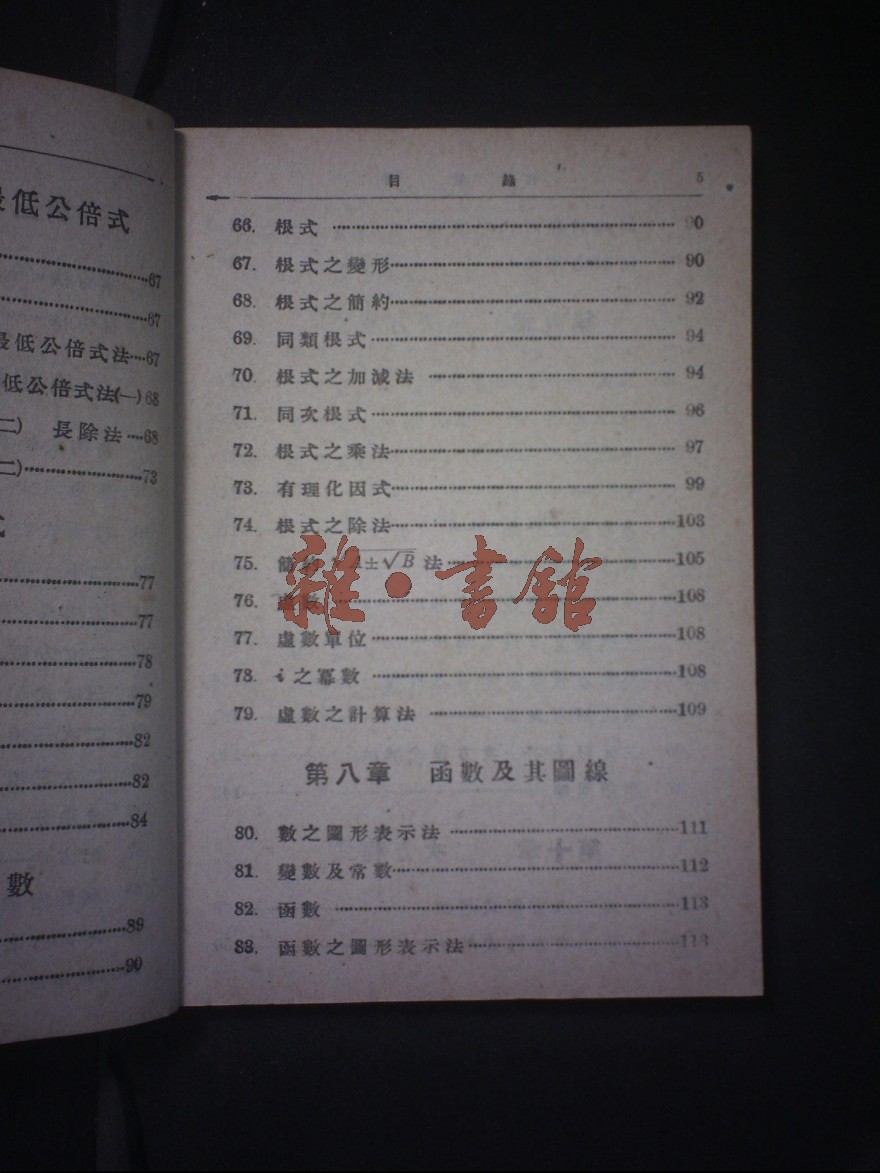 最低公倍式
67
67
最低公倍式法 67
低公倍式法(一) 68
二) 長除法 68
二) 73
式
77
77
78
79
82
82
84
數
89
90
目 錄 5
66. 根式 90
67. 根式之變形 90
68. 根式之簡約 92
69. 同類根式 94
70. 根式之加減法 94
71. 同次根式 96
72. 根式之乘法 97
73. 有理化因式 99
74. 根式之除法 103
75. 簡約 ±√B 法 105
76. 虛數 108
77. 虛數單位 108
78. i之冪數 108
79. 虛數之計算法 109
第八章 函數及其圖線
80. 數之圖形表示法 111
81. 變數及常數 112
82. 函數 113
83. 函數之圖形表示法 113
雜·書館